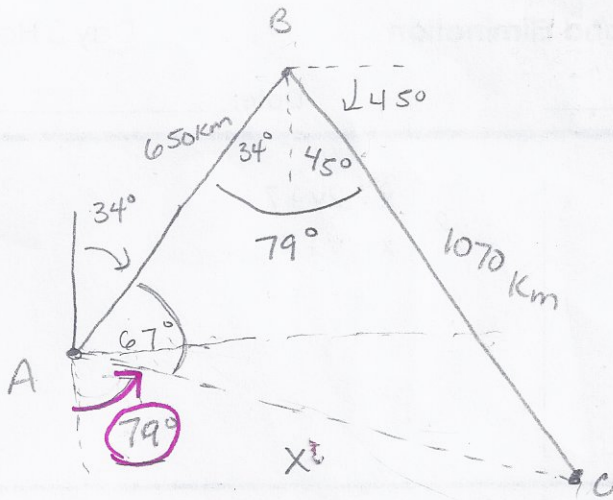 B
45°
650km
34°
45°
34°
79°
1070 km
67°
A
79°
X
C